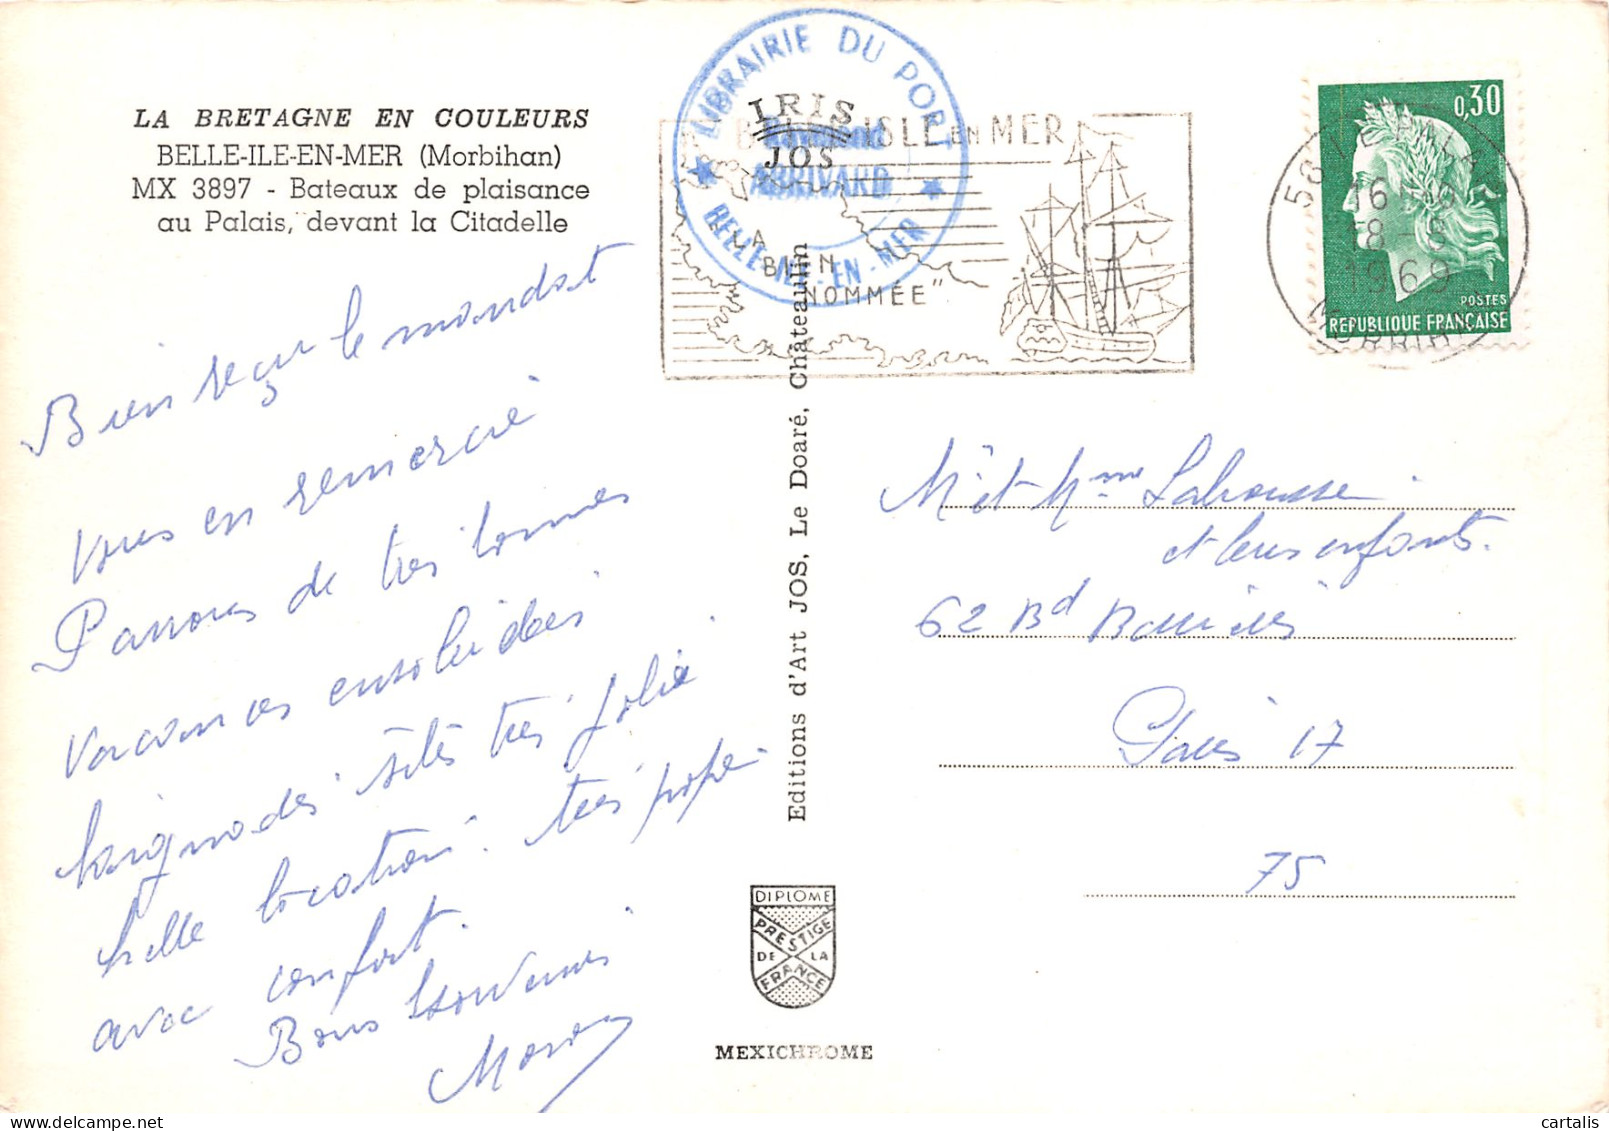 LA BRETAGNE EN COULEURS
BELLE-ILE-EN-MER (Morbihan)
MX 3897 - Bateaux de plaisance
au Palais, devant la Citadelle
LIBRAIRIE DU PORT
Raymond
ABRIVARD
BELLE-ILE-EN-MER
IRIS
JOS
ISLE EN MER
LA
BIEN
NOMMÉE"
0,30
POSTES
REPUBLIQUE FRANÇAISE
56 LE PALAIS
16 H
8 - 8
1969
MORBIHAN
Bien reçu le mandat
vous en remercie
Passons de très bonnes
vacances ensoleillées
baignades sites très jolie
belle location. très propre
avec confort.
Bons Souvenirs
Editions d'Art JOS, Le Doaré, Châteaulin
Mr et Mme Lahousse
et leurs enfants.
62 Bd
Paris 17
75
DIPLOME
PRESTIGE
DE LA
FRANCE
MEXICHROME
cartalis